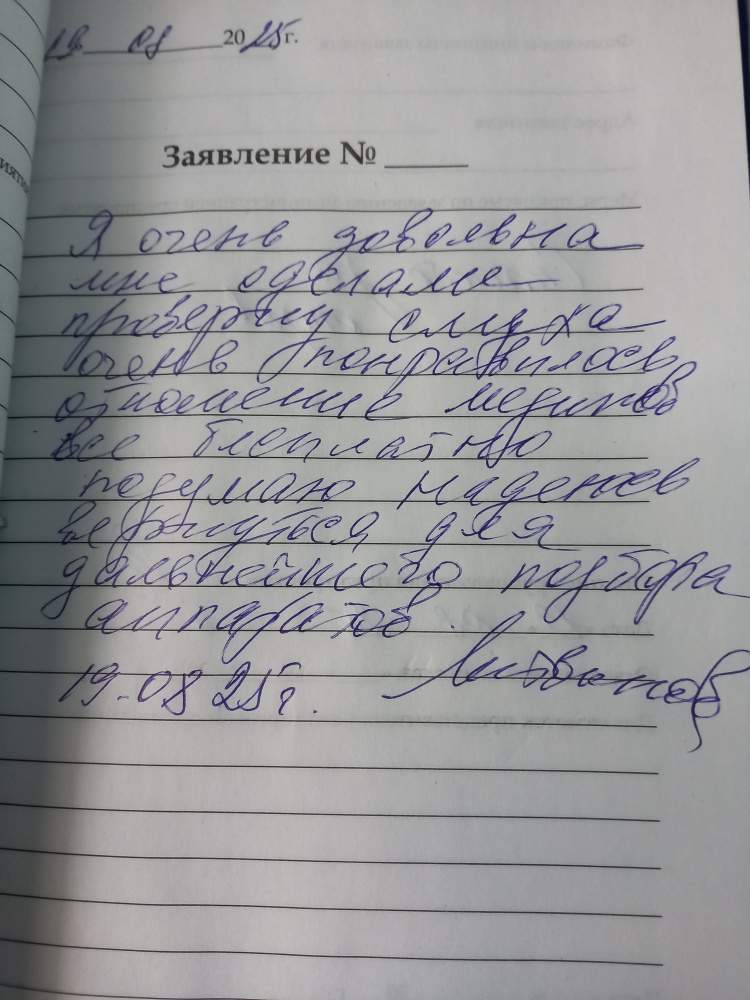 19 08 2025г.
Заявление № ____
Я очень довольна
мне сделали
проверку слуха
очень понравилось
отношение медиков
все бесплатно
подумаю надеюсь
вернуться для
дальнейшего подбора
аппаратов.
19.08 25г. Литвинов